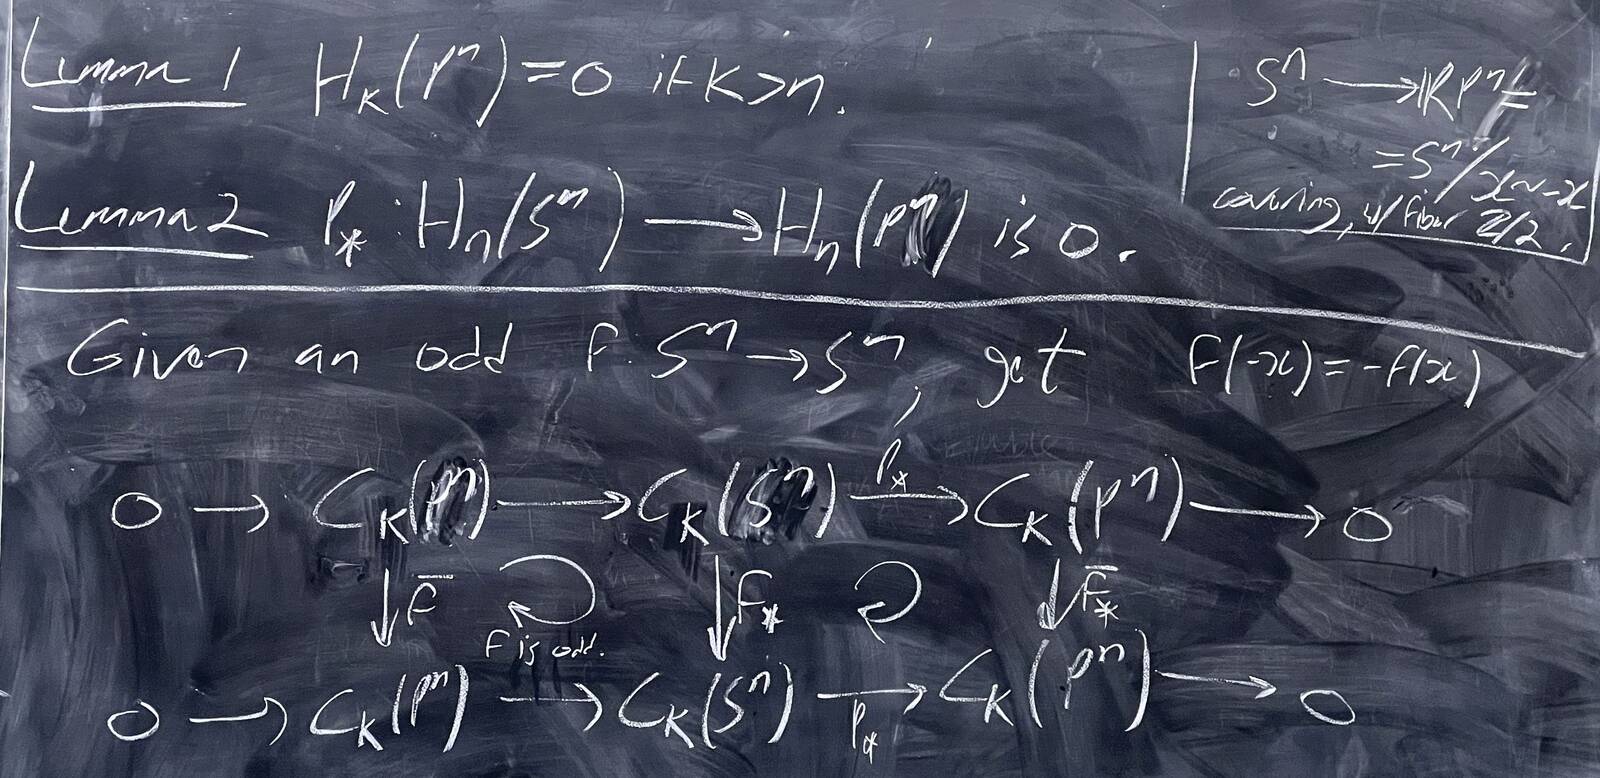 Lemma 1 H_k(P^n) = 0 if k > n.
Lemma 2 P_* : H_n(S^n) ⟶ H_n(P^n) is 0.
S^n ⟶ RP^n =
= S^n / x ~ -x
covering, w/ fiber Z/2.
Given an odd f: S^n → S^n, get f(-x) = -f(x)
0 → C_k(P^n) ⟶ C_k(S^n) ⟶ P_* C_k(P^n) ⟶ 0
↓ f̄ ↓ f_* ↓ f̄_*
f is odd.
0 → C_k(P^n) ⟶ C_k(S^n) ⟶ P_* C_k(P^n) ⟶ 0